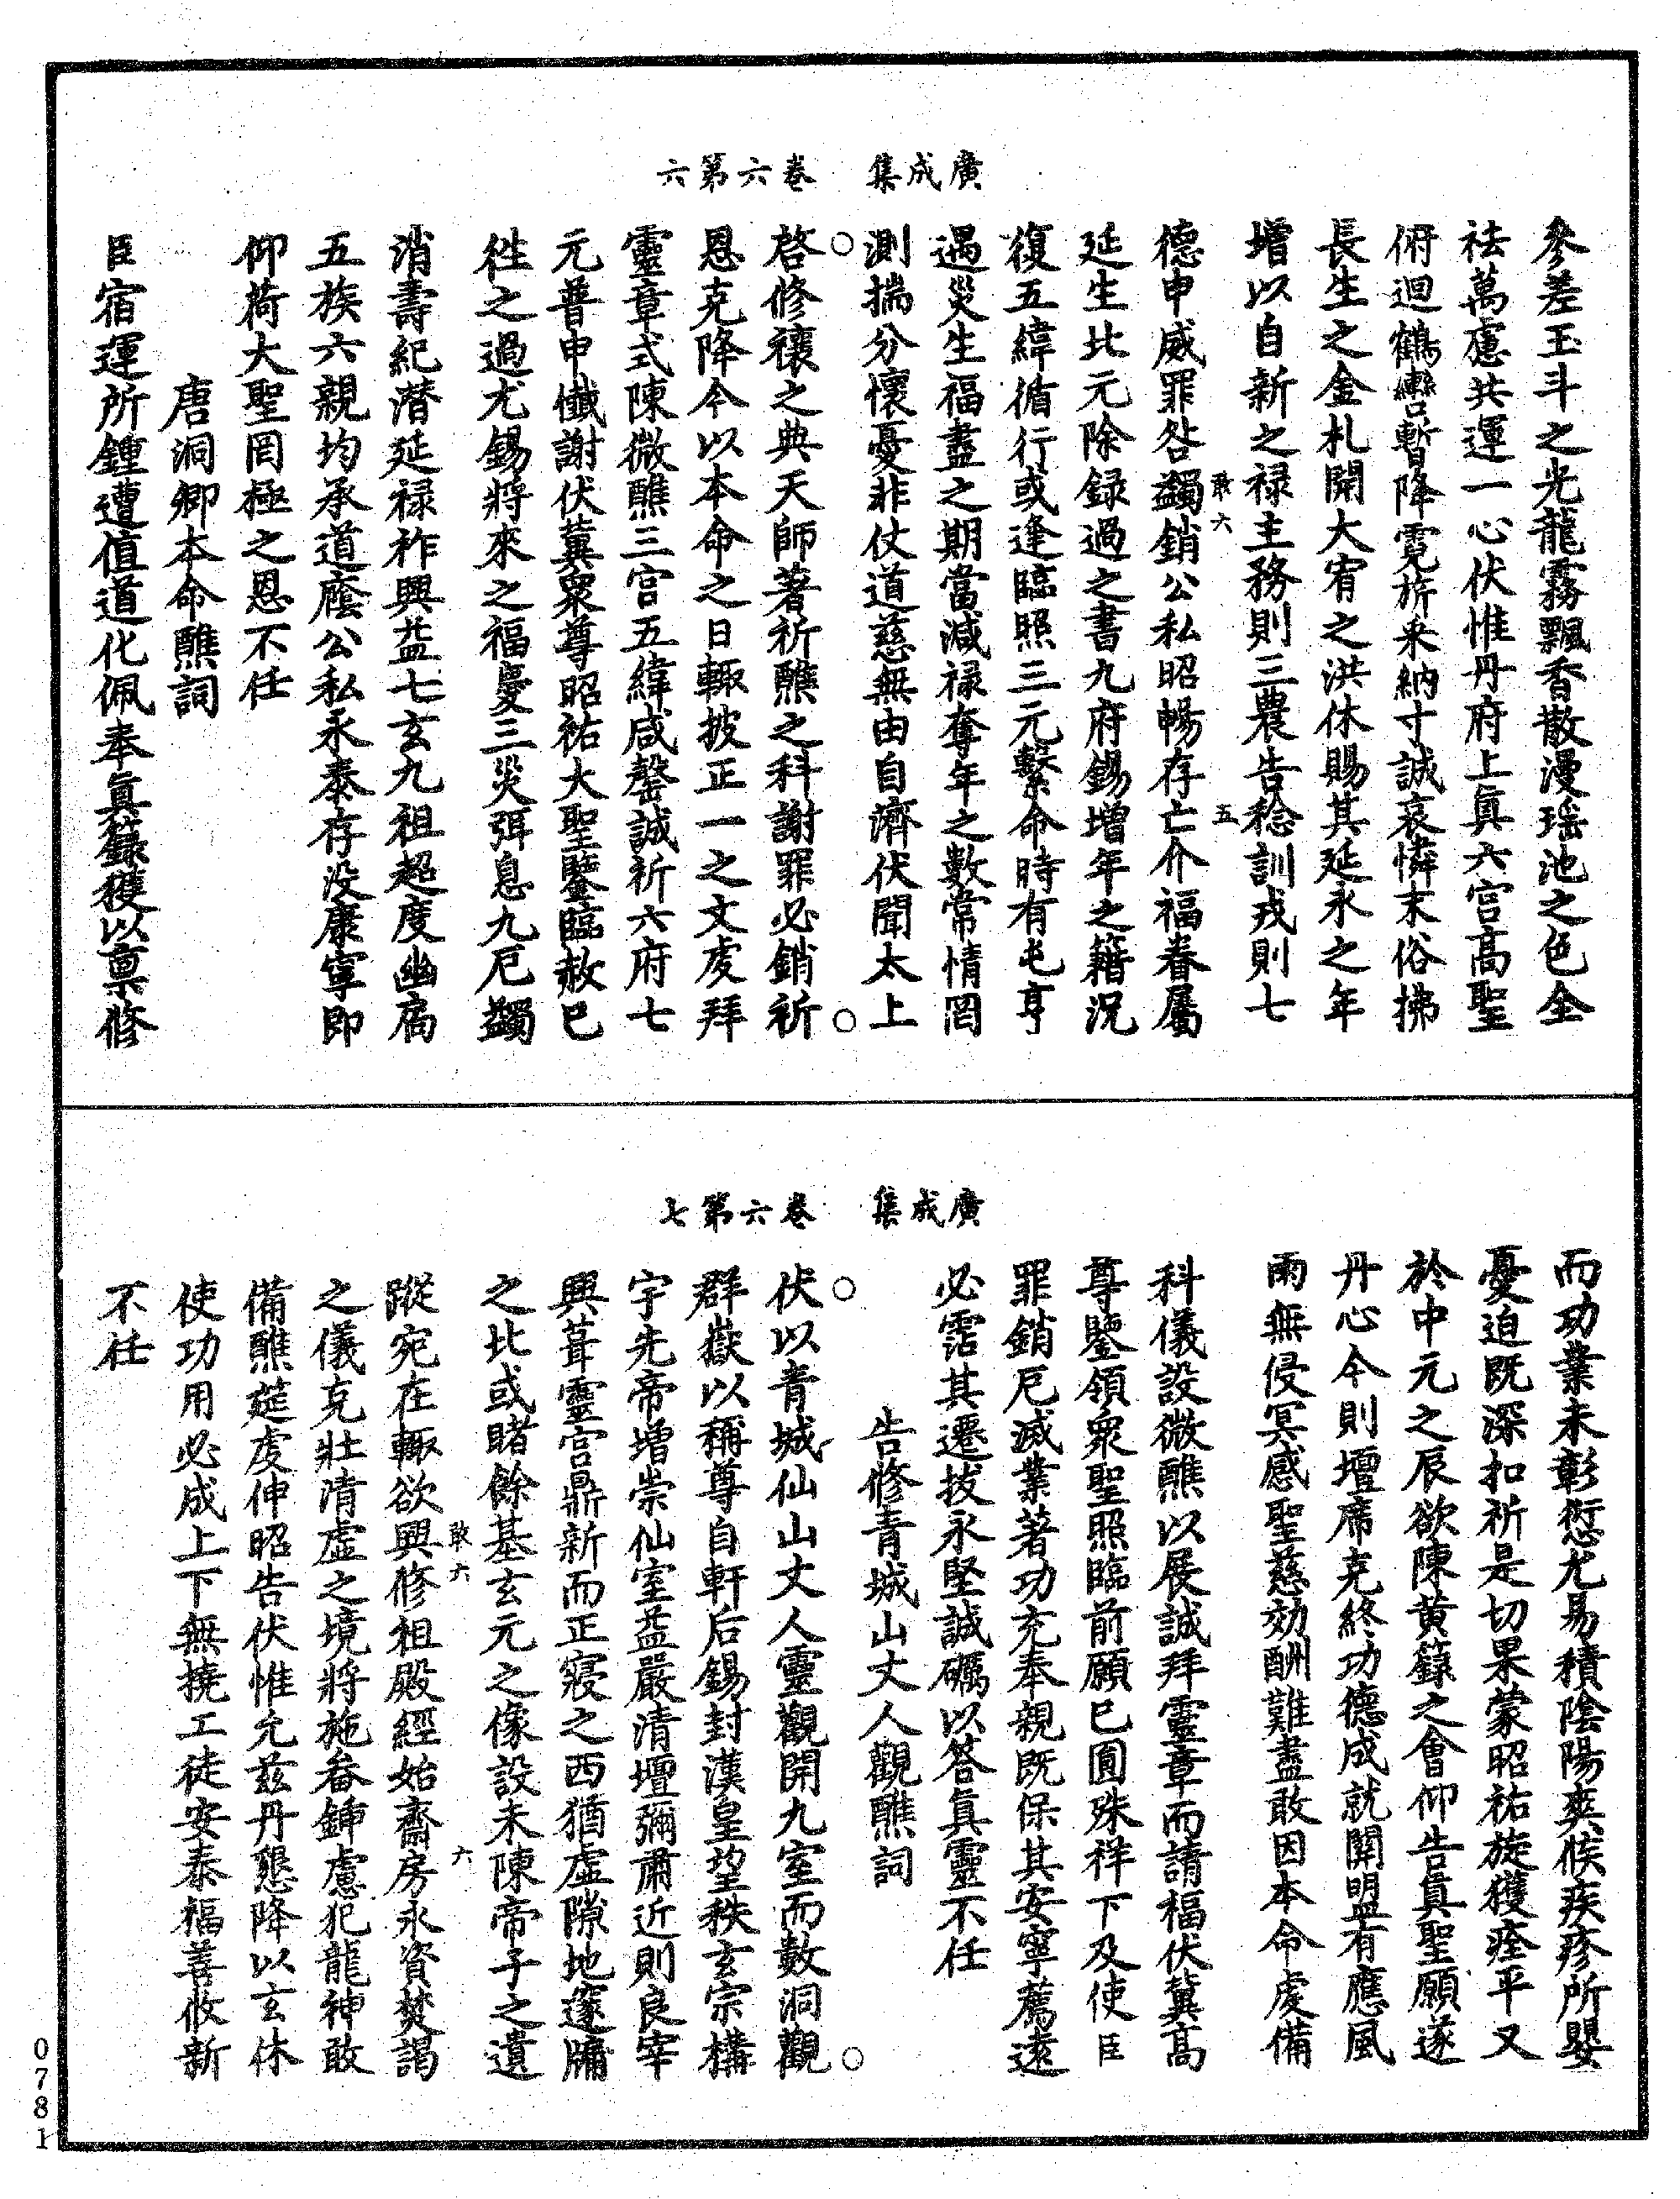 廣成集　卷六第六
參差玉斗之光龍霧飄香散漫瑶池之色全
祛萬慮共運一心伏惟丹府上眞六宫髙聖
俯迴鶴轡暫降霓旂来納寸誠哀憐末俗拂
長生之金札開大宥之洪休賜其延永之年
増以自新之禄主務則三農告稔訓戎則七
敢六　五
德申威罪咎蠲銷公私昭暢存亡介福眷屬
延生比元除録過之書九府錫增年之籍况
復五緯循行或逢臨照三元繫命時有屯亨
遇災生福盡之期當減禄奪年之數常情罔
測揣分懷憂非仗道慈無由自濟伏聞太上
啓修禳之典天師著祈醮之科謝罪必銷祈
恩克降今以本命之日輙披正一之文虔拜
靈章式陳微醮三宫五緯咸罄誠祈六府七
元普申懺謝伏冀衆尊昭祐大聖鑒臨赦已
徃之過尤錫將來之福慶三災弭息九厄蠲
消壽紀潛延禄祚興益七玄九祖超度幽扃
五族六親均承道廕公私永泰存没康寧即
仰荷大聖罔極之恩不任
唐洞卿本命醮詞
臣宿運所鍾遭值道化佩奉眞籙獲以禀修
廣成集　卷六第七
而功業未彰愆尤易積陰陽爽候疾疹所嬰
憂迫既深扣祈是切果蒙昭祐旋獲痊平又
於中元之辰欲陳黄籙之會仰告眞聖願遂
丹心今則壇席克終功德成就開盟有應風
雨無侵冥感聖慈効酬難盡敢因本命虔備
科儀設微醮以展誠拜靈章而請福伏冀髙
尊鑒領衆聖照臨前願已圓殊祥下及使臣
罪銷厄滅業著功充奉親既保其安寧薦逺
必霑其遷拔永堅誠礪以答眞靈不任
告修青城山丈人觀醮詞
伏以青城仙山丈人靈觀開九室而數洞觀
群嶽以稱尊自軒后錫封漢皇望秩玄宗構
宇先帝增崇仙室益嚴清壇彌肅近則良宰
興葺靈宫鼎新而正寢之西猶虛隙地邃牖
之北或睹餘基玄元之像設未陳帝子之遺
蹤宛在輙欲興修祖殿經始齋房永資焚謁
敢六　六
之儀克壯清虚之境將施畚鍤慮犯龍神敢
備醮筵虔伸昭告伏惟允兹丹懇降以玄休
使功用必成上下無撓工徒安泰福善攸新
不任
0781